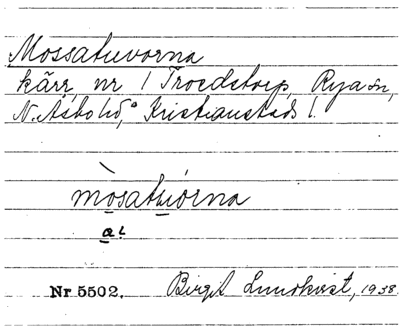 Mossatuvorna
kärr, nr 1 Troedstorp, Rya sn,
N. Åsbo hd, Kristianstads l.
mosatuórna
a!
Nr 5502. Birgit Lundkvist, 1938